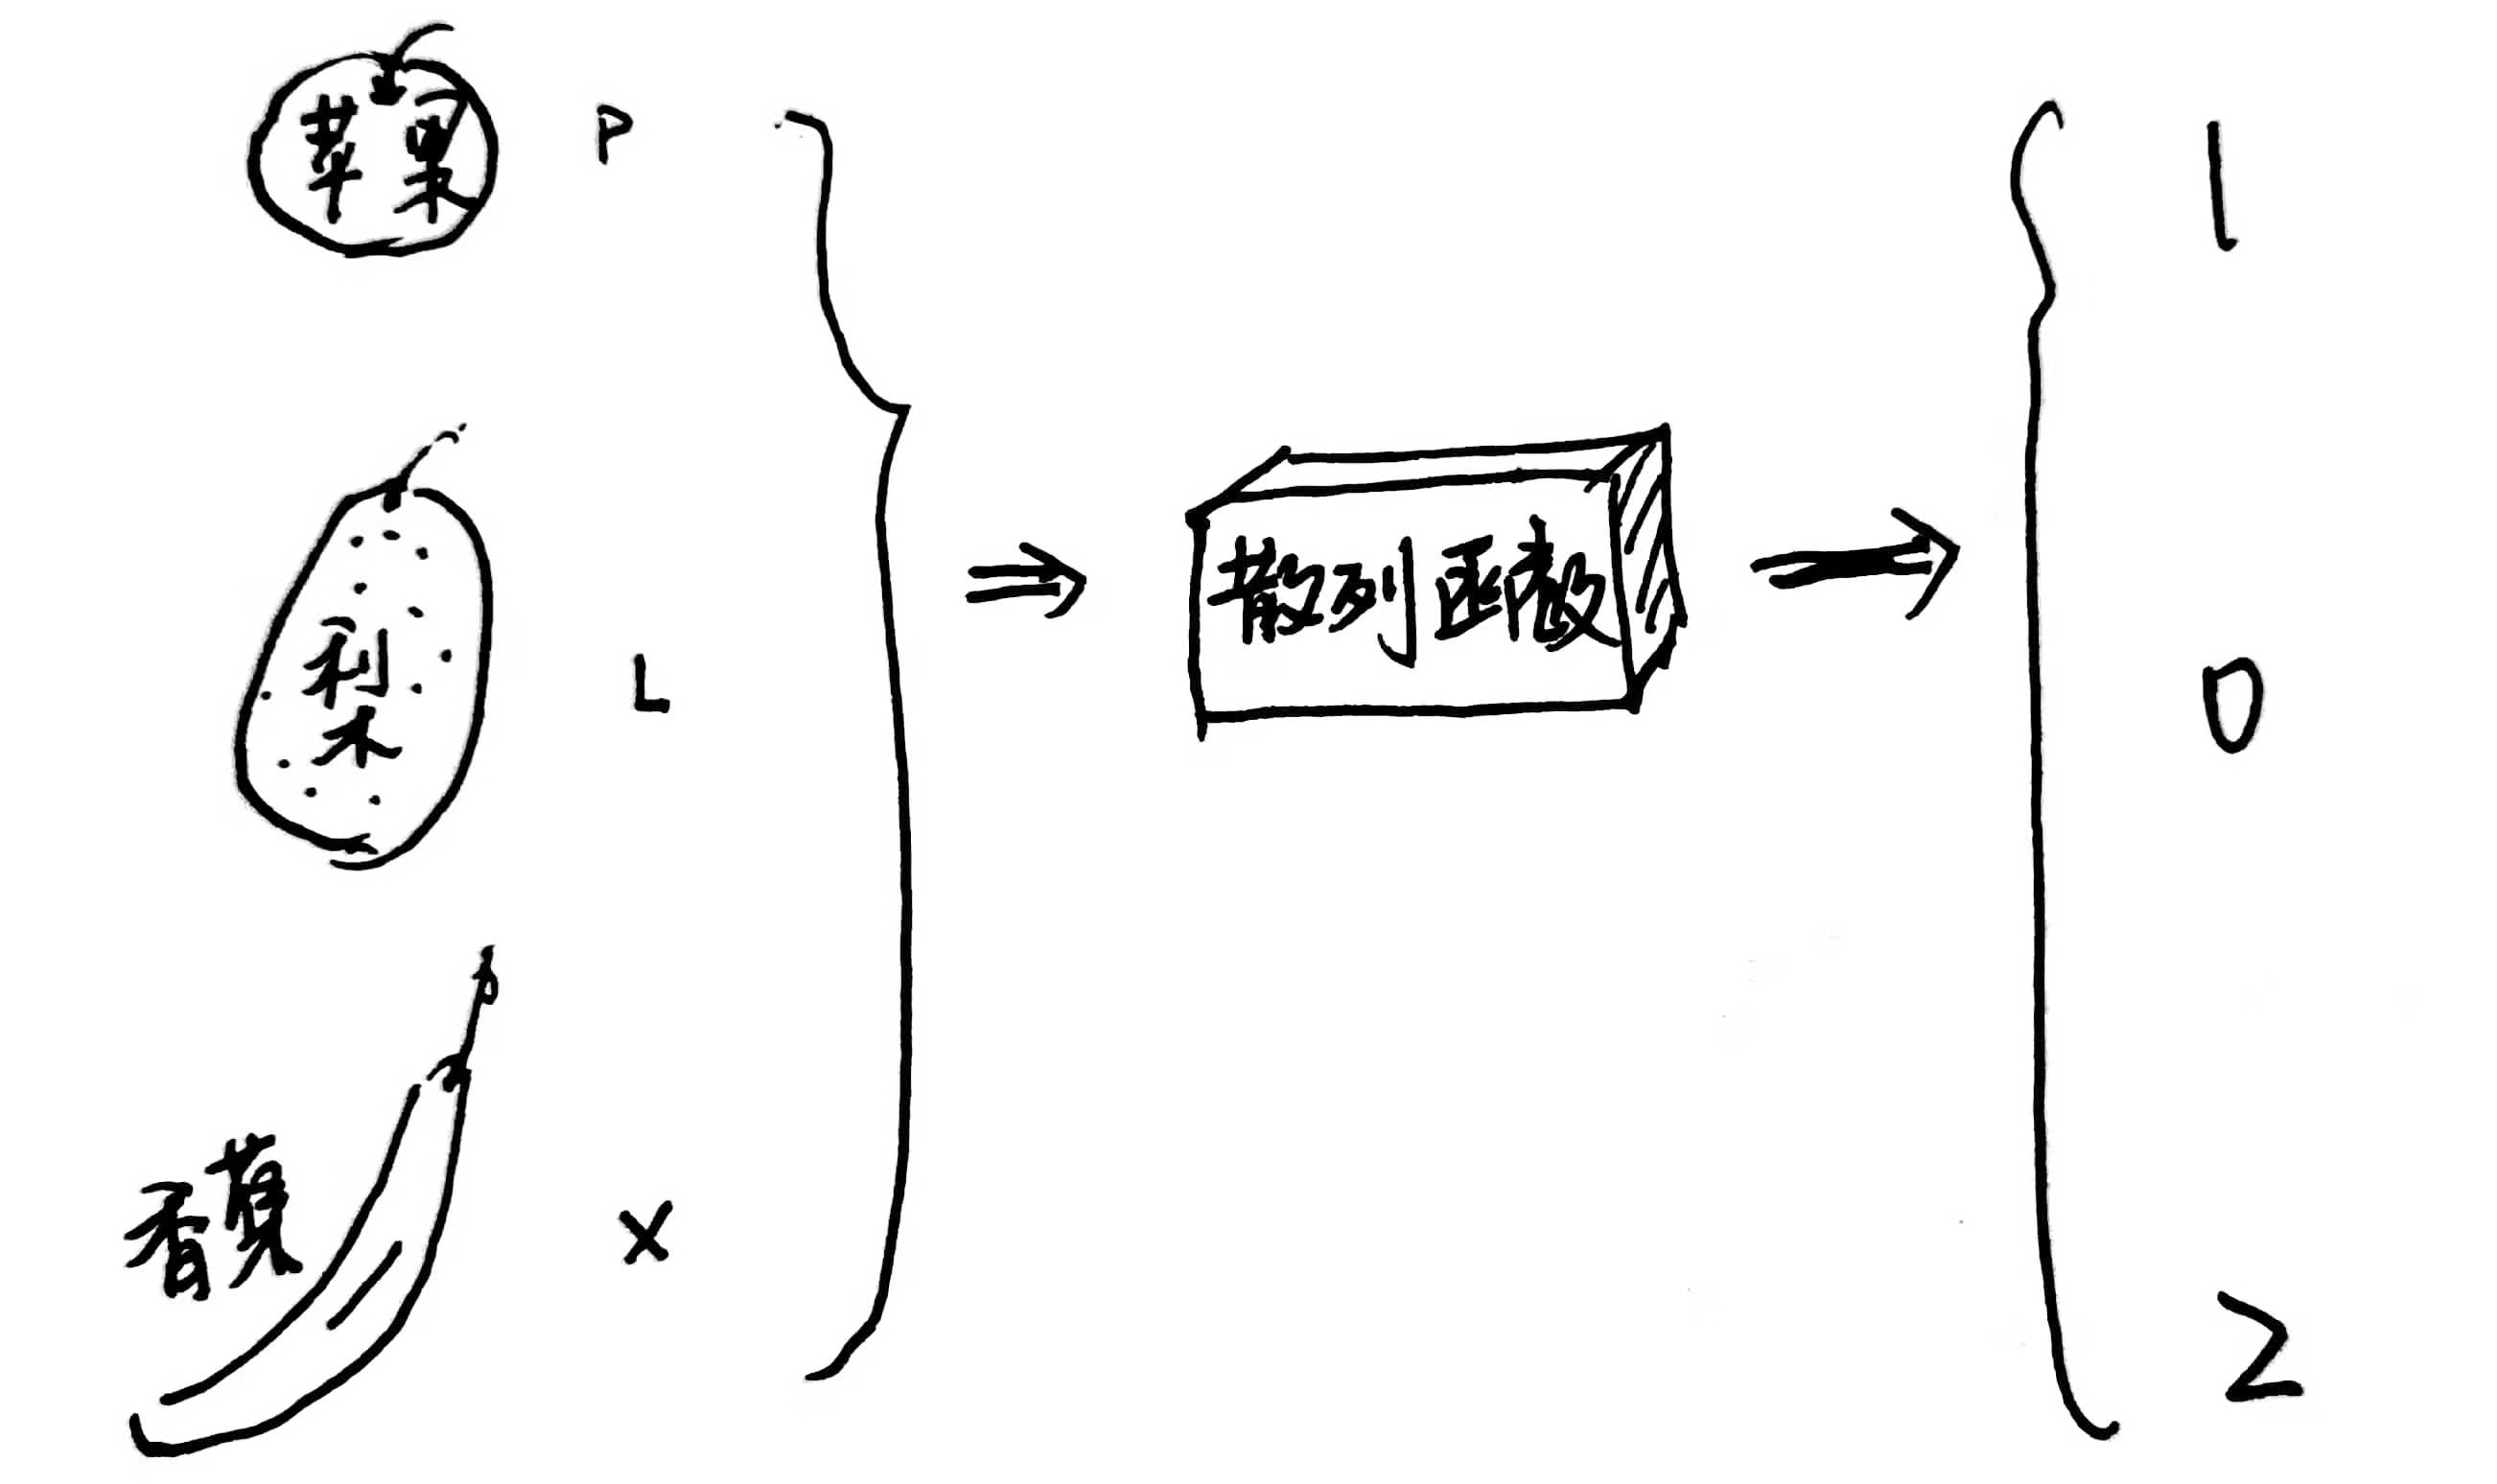 苹果 P
梨 L
香蕉 X
散列函数
1
0
2